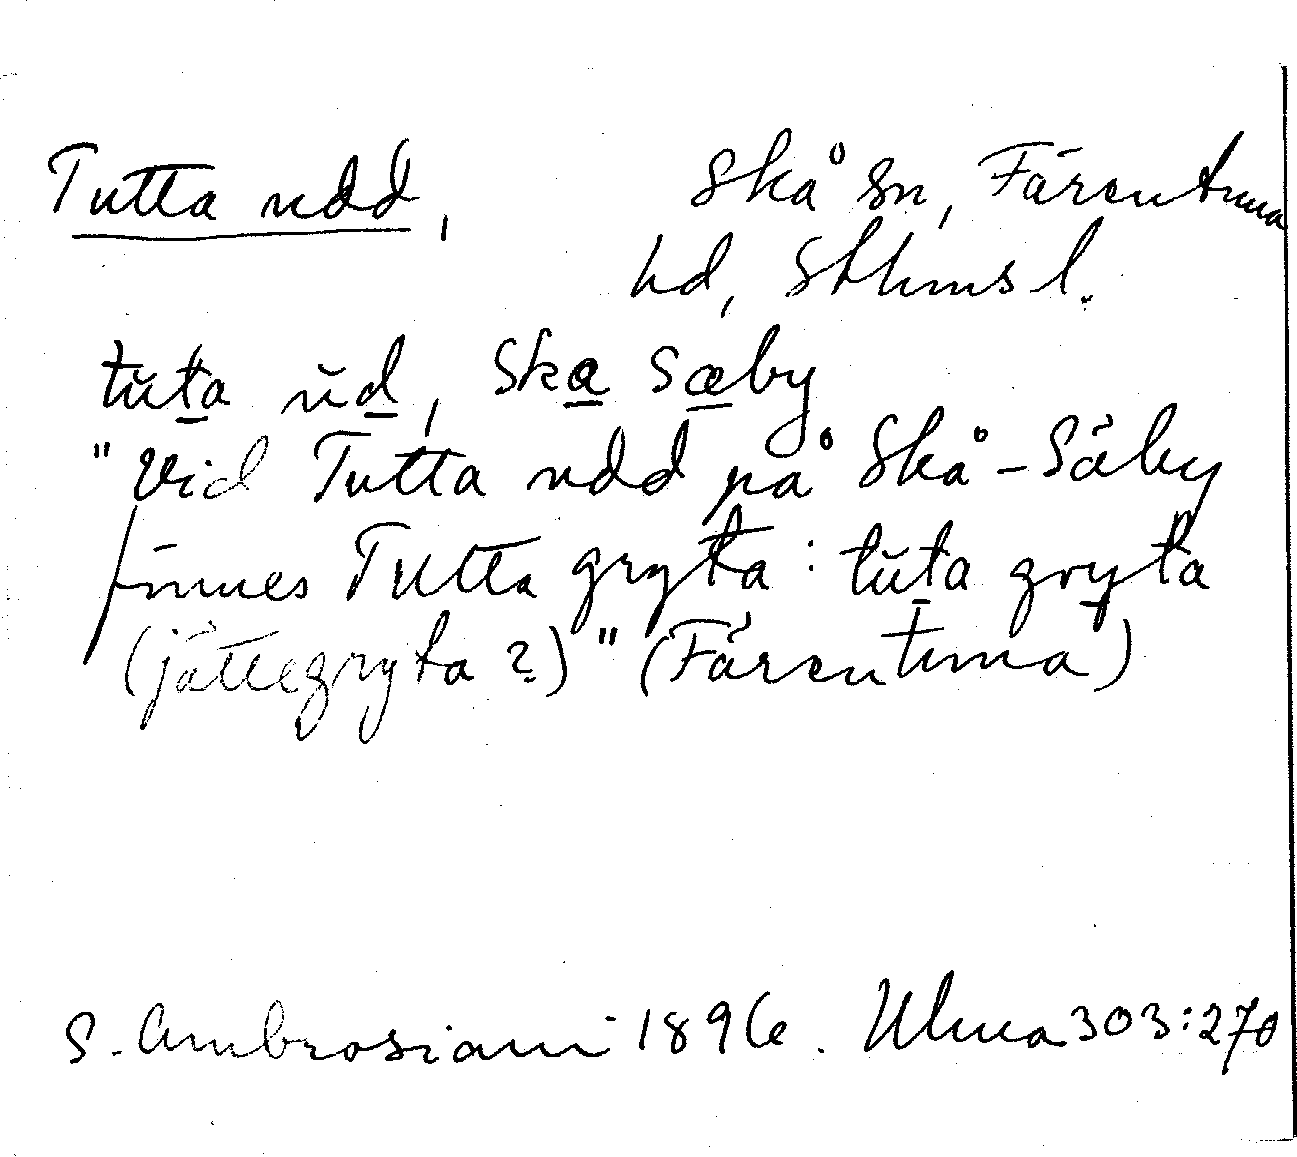 Tutta udd, Skå sn, Färentuna
hd, Sthms l.
tŭt̲a ŭd̲, Ska̲ sæ̲by
"Vid Tutta udd på Skå-Säby
finnes Tutta gryta: tŭt̲a gry̲ta
(jättegryta?)" (Färentuna)
S. Ambrosiani 1896. Ulma 303:270